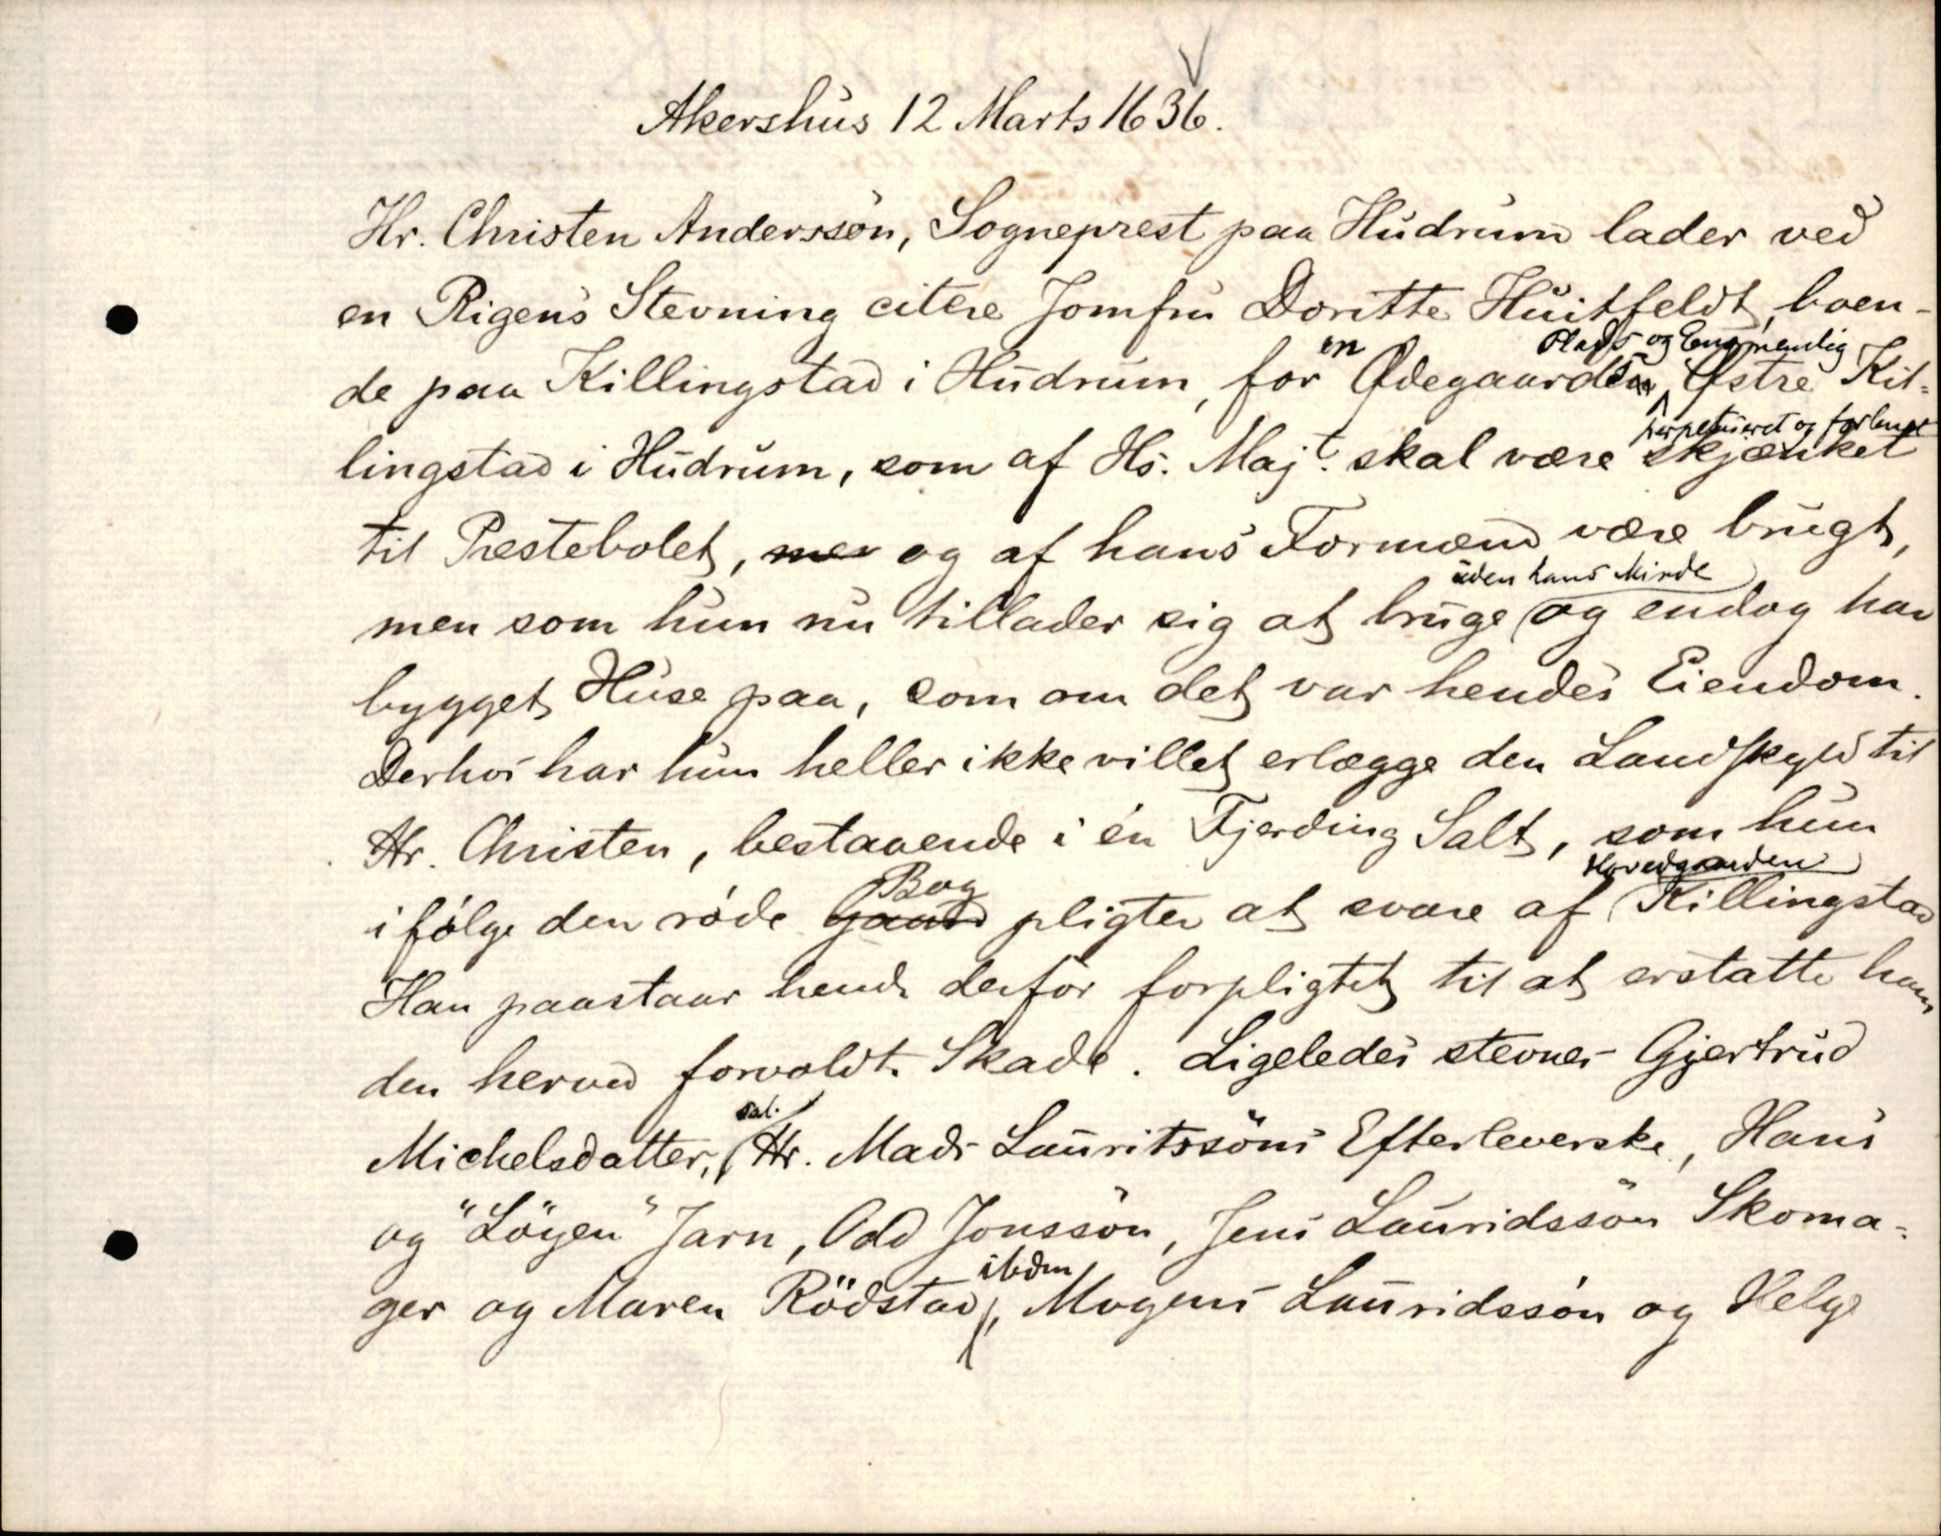 Akershus 12 Marts 1636.
Hr. Christen Anderssön, Sogneprest paa Hudrum lader ved
en Rigens Stevning citere Jomfru Doritte Huitfeldt, boen-
de paa Killingstad i Hudrum, for en Ødegaards Plads og Eng nemlig Østre Kil-
lingstad i Hudrum, som af Hs. Majt. skal være perpetueret og forlenet skjænket
til Prestebolet, og af hans Formænd være brugt,
men som hun nu tillader sig at bruge uden hans Minde og endog har
bygget Huse paa, som om det var hendes Eiendom.
Derhos har hun heller ikke villet erlægge den Landskyld til
Hr. Christen, bestaaende i én Fjerding Salt, som hun
ifølge den røde Bog pligter at svare af Hovedgaarden Killingstad
Han paastaar hende derfor forpligtet til at erstatte ham
den herved forvoldte Skade. Ligeledes stevnes Gjertrud
Michelsdatter, sal. Hr. Mads Lauritssöns Efterleverske, Hans
og "Löyen" Jarn, Odd Jonssön, Jens Lauridssön Skoma-
ger og Maren Rödstad ibdm, Mogens Lauridssön og Helge